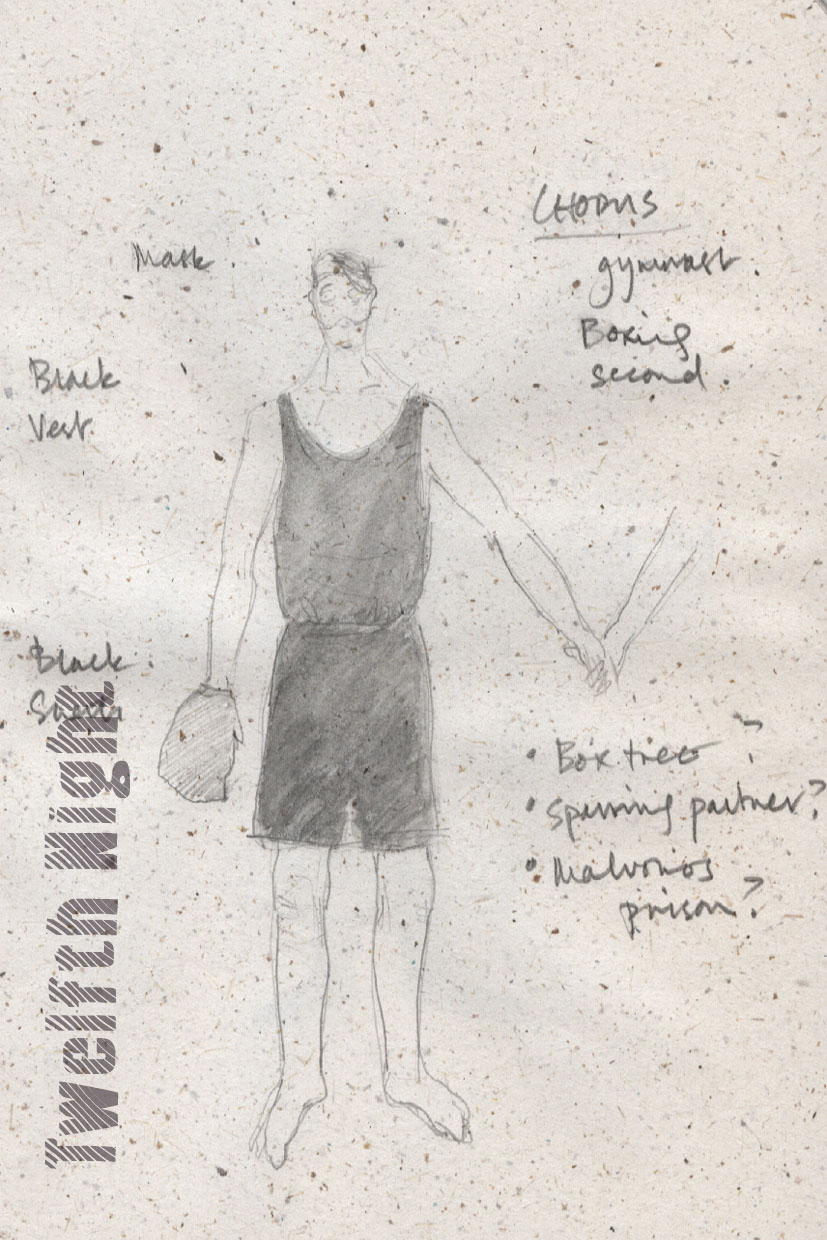 CHORUS
Mask.
gymnast.
Boxing
second.
Black
Vest.
Black
• Box tree ?
• Sparring partner?
• Malvolios
prison?
Twelfth Night